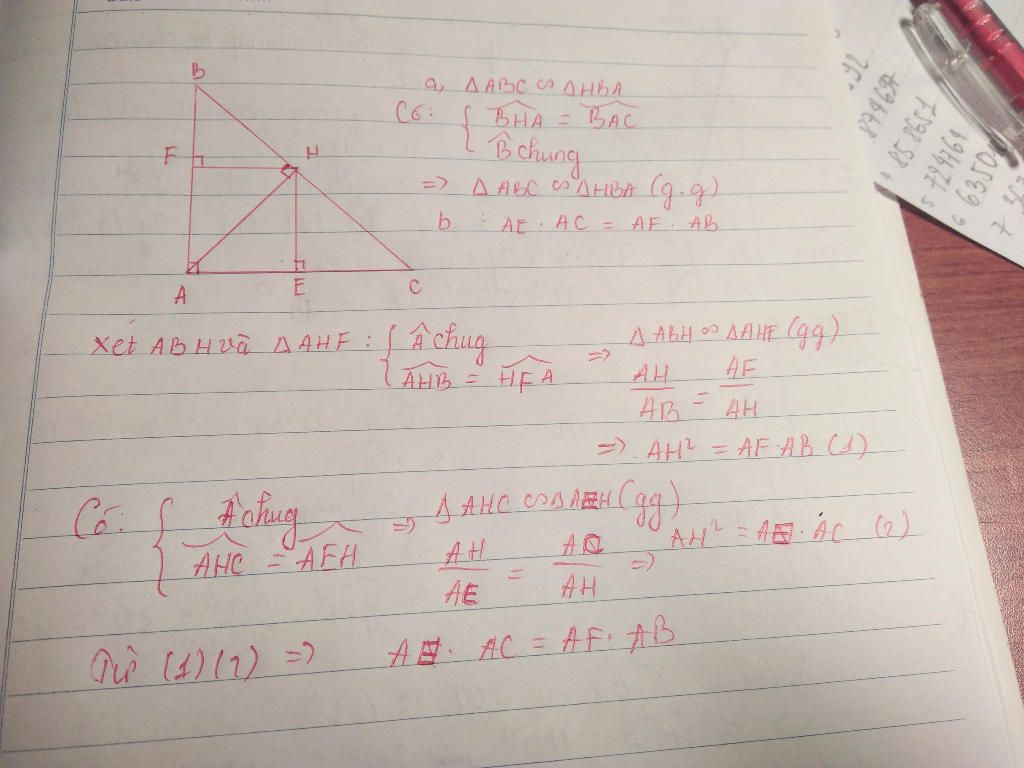 B
F
H
A
E
C
a, ΔABC ∽ ΔHBA
Có: { BHA = BAC
B̂ chung
=> ΔABC ∽ ΔHBA (g.g)
b. AE . AC = AF . AB
Xét ABH và ΔAHF : { Â chug
AHB = HFA
=> ΔABH ∽ ΔAHF (gg)
AH/AB = AF/AH
=> AH² = AF.AB (1)
Có: { Â chug
AHC = AEH
=> ΔAHC ∽ ΔAEH (gg)
AH/AE = AC/AH => AH² = AE . AC (2)
Từ (1)(2) => AE . AC = AF . AB
92
87465
4 858651
5 72446
6 6350
7